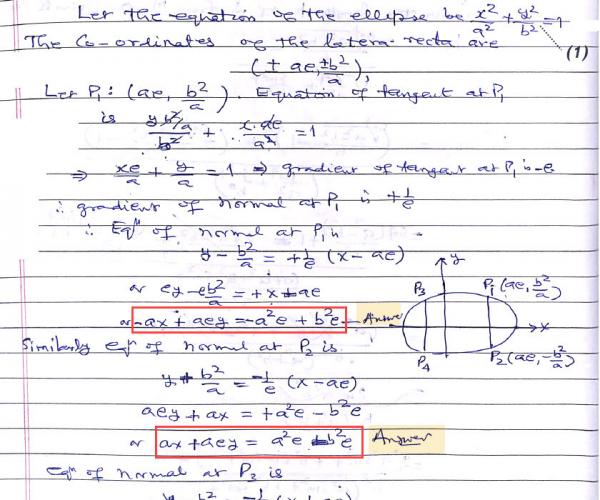 Let the equation of the ellipse be x²/a² + y²/b² = 1
(1)
The Co-ordinates of the latera-recta are
(± ae, ± b²/a),
Let P₁ : (ae, b²/a). Equation of tangent at P₁
is y b²/a / b² + x·ae / a² = 1
⇒ xe/a + y/a = 1 ⇒ gradient of tangent at P₁ is -e
∴ gradient of normal at P₁ is +1/e
∴ Eqⁿ of normal at P₁ is
y - b²/a = +1/e (x - ae)
or ey - eb²/a = +x - ae
or -ax + aey = -a²e + b²e Answer
Similarly eqⁿ of normal at P₂ is
y + b²/a = -1/e (x - ae)
aey + ax = +a²e - b²e
or ax + aey = a²e - b²e Answer
Eqⁿ of normal at P₃ is
y
P₃ P₁ (ae, b²/a)
x
P₄ P₂ (ae, -b²/a)